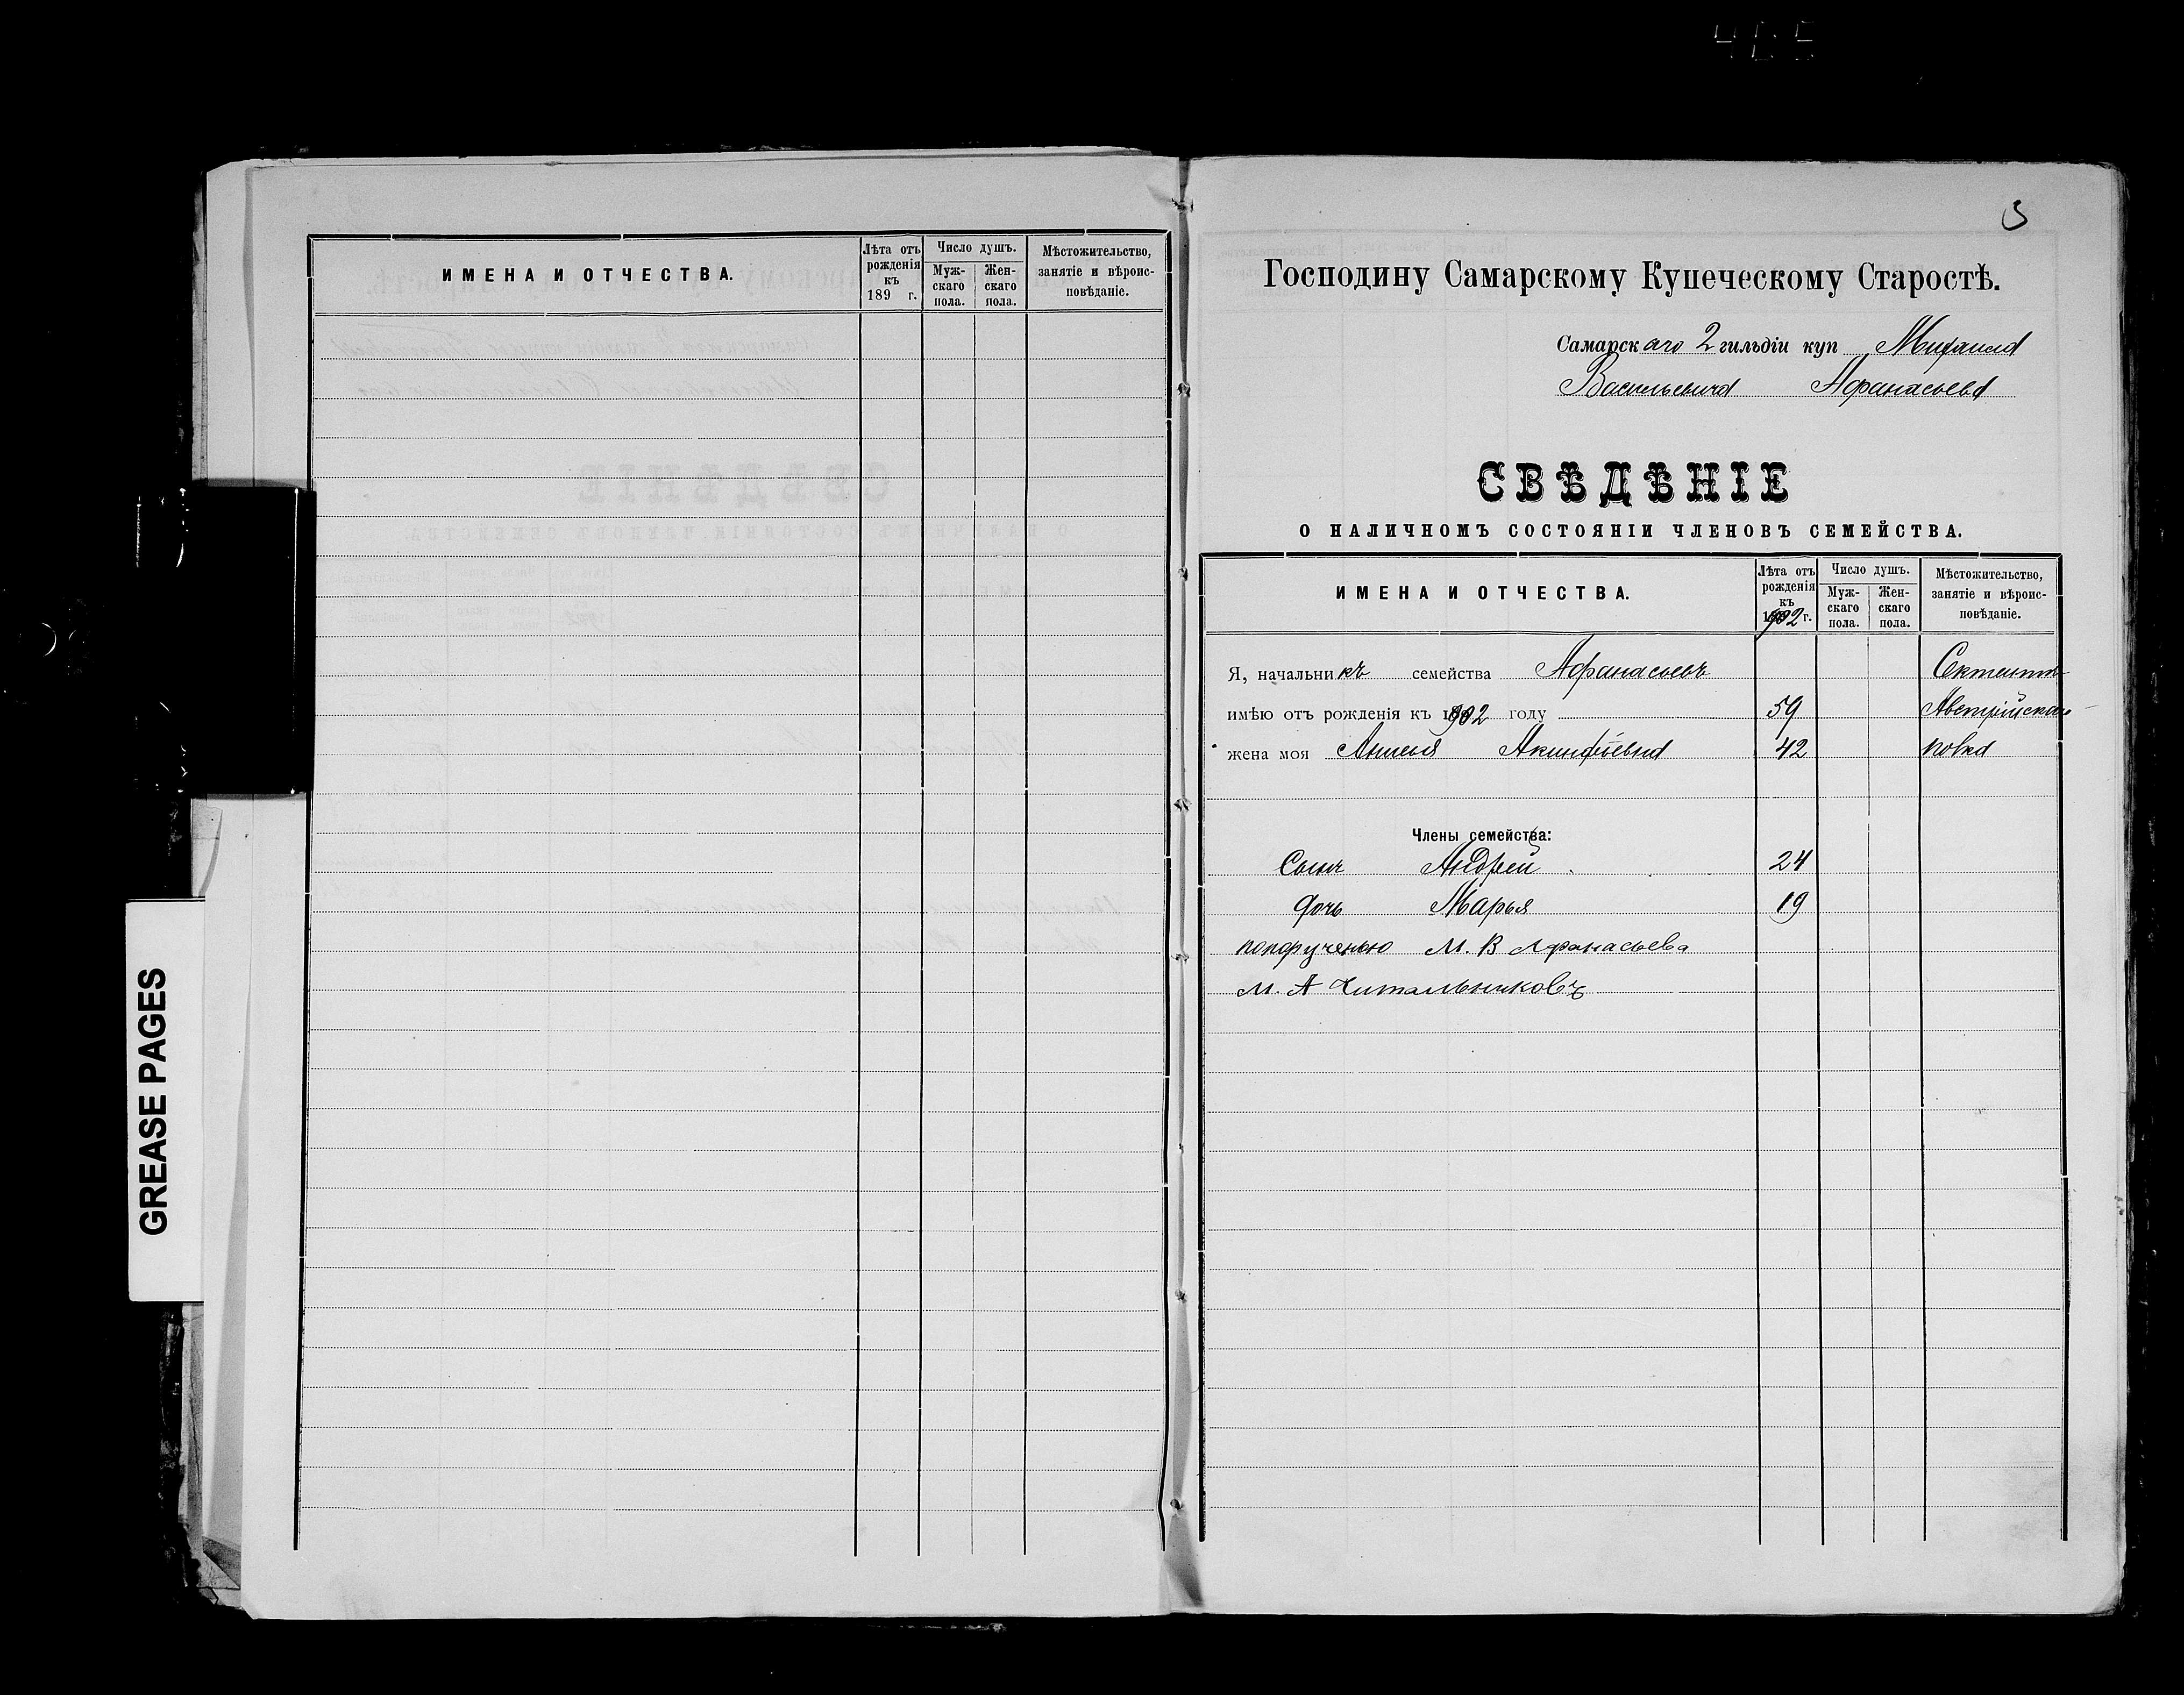 405
GREASE PAGES
ИМЕНА И ОТЧЕСТВА.
Лѣта отъ рожденія къ 189 г.
Число душъ.
Муж-скаго пола.
Жен-скаго пола.
Мѣстожительство, занятіе и вѣроис-повѣданіе.
Господину Самарскому Купеческому Старостѣ.
Самарскаго 2 гильдіи куп Михаила
Васильевича Афанасьева
СВѢДѢНІЕ
О НАЛИЧНОМЪ СОСТОЯНІИ ЧЛЕНОВЪ СЕМЕЙСТВА.
ИМЕНА И ОТЧЕСТВА.
Лѣта отъ рожденія къ 1902 г.
Число душъ.
Муж-скаго пола.
Жен-скаго пола.
Мѣстожительство, занятіе и вѣроис-повѣданіе.
Я, начальникъ семейства Афанасьевъ
имѣю отъ рожденія къ 1902 году 59 Австрійскаго
жена моя Акинфьевна 42 повка
Члены семейства:
Сынъ Андрей 24
Дочь Марья 19
попорученью М. В Афанасьева
М. А Читальниковъ